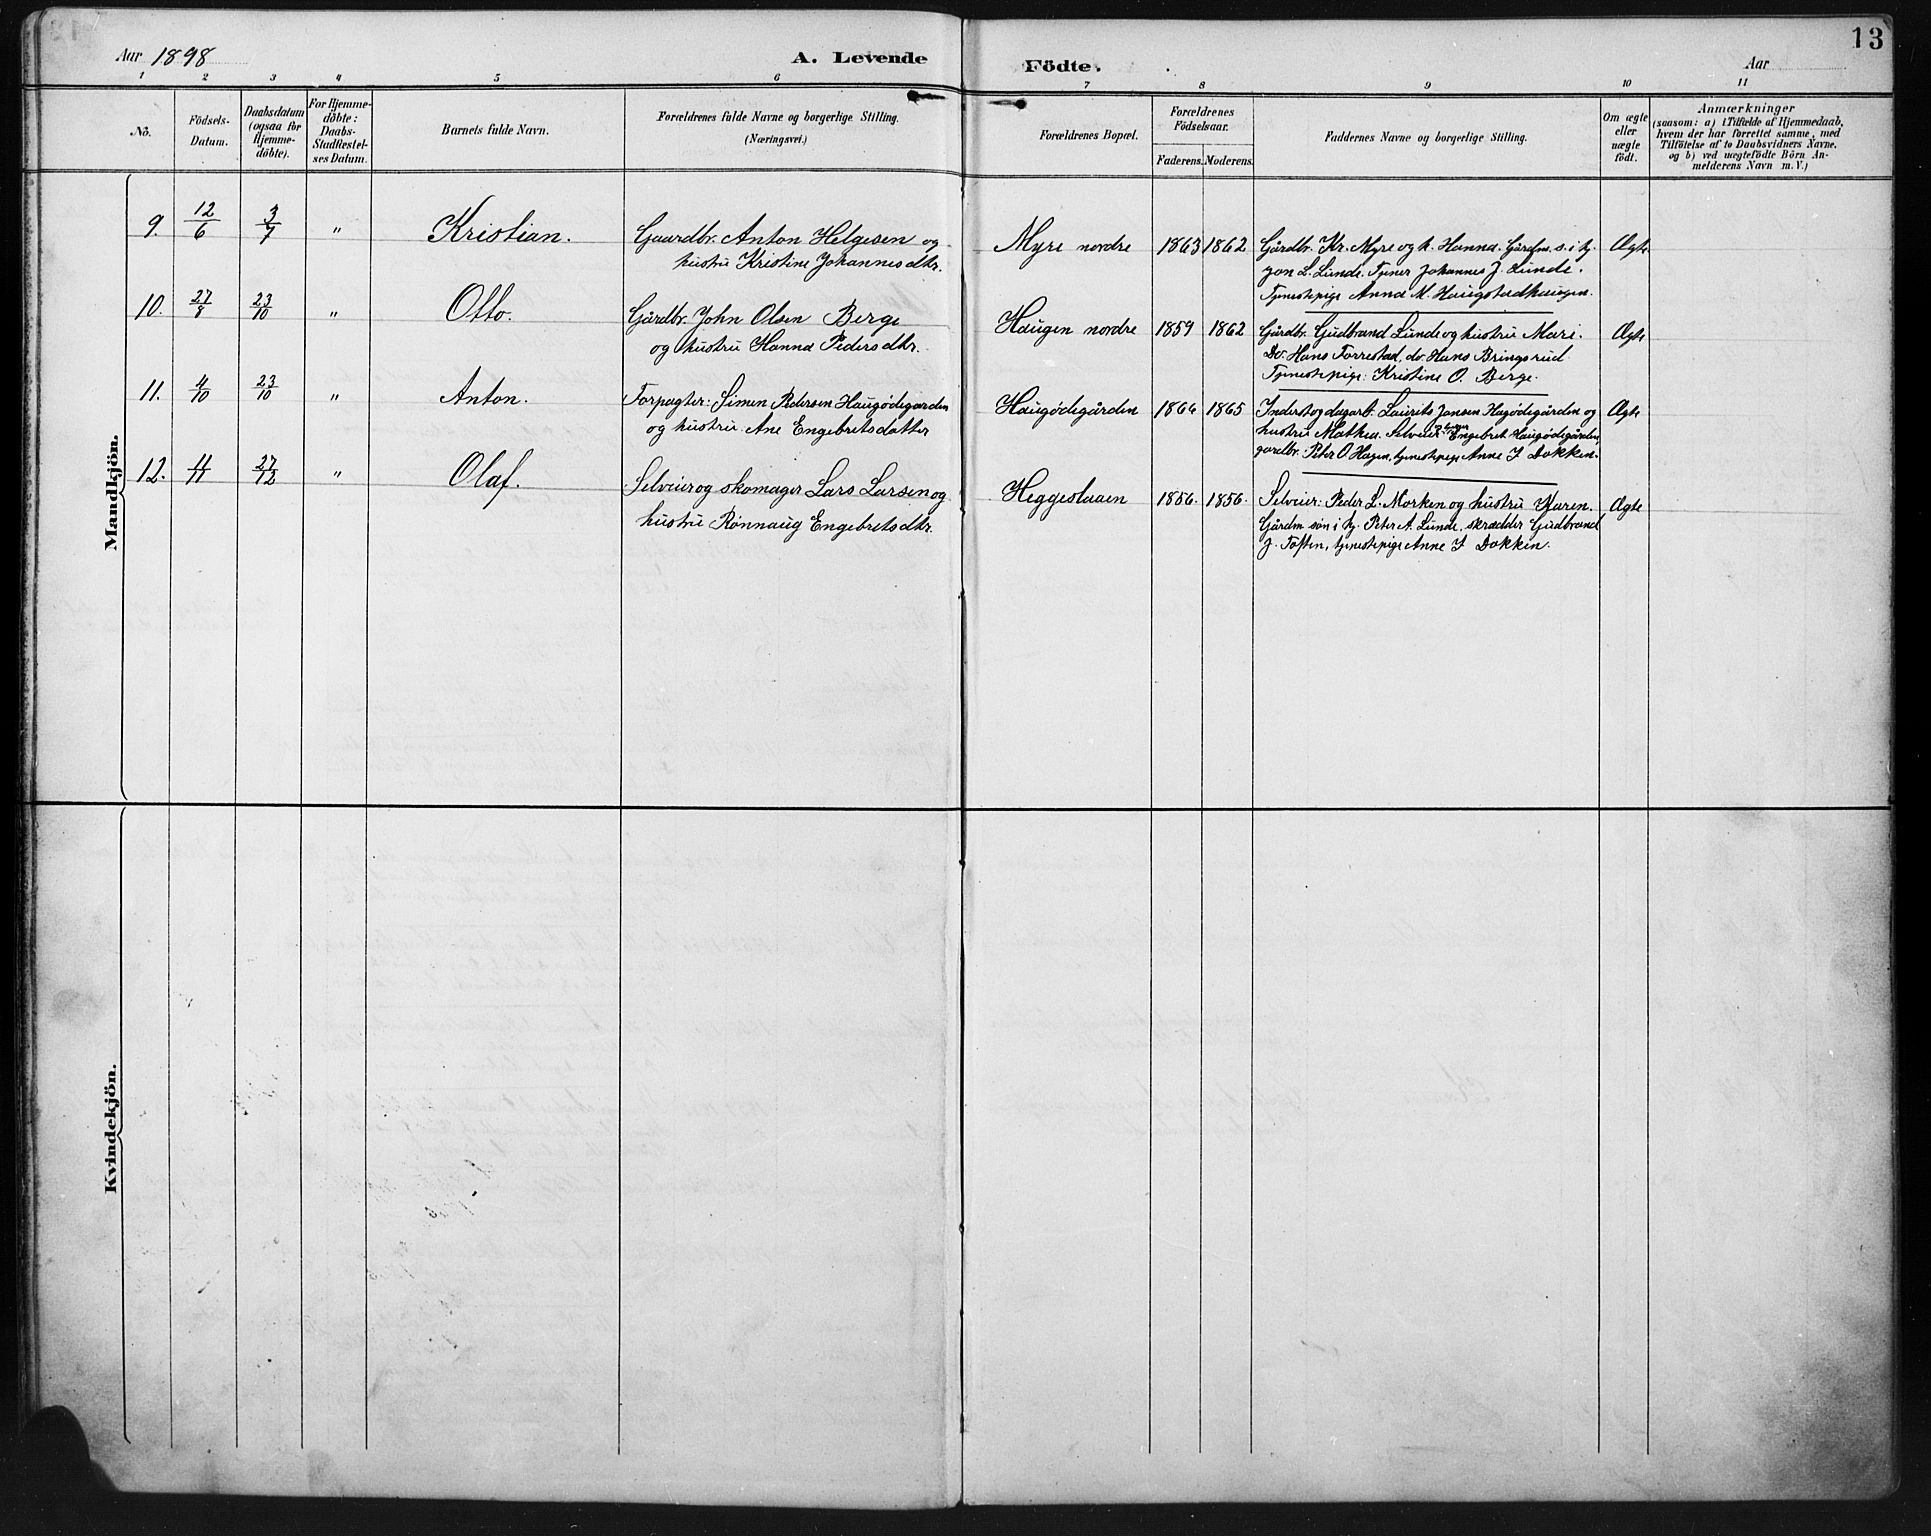 13
Aar 1898
A. Levende Födte.
Aar
1 2 3 4 5 6 7 8 9 10 11
No.
Födsels-
Datum.
Daabsdatum
(ogsaa for
Hjemme-
döbte).
For Hjemme-
döbte:
Daabs-
Stadfæstel-
ses Datum.
Barnets fulde Navn.
Forældrenes fulde Navne og borgerlige Stilling.
(Næringsvei.)
Forældrenes Bopæl.
Forældrenes
Födselsaar.
Faderens. Moderens.
Faddernes Navne og borgerlige Stilling.
Om ægte
eller
uægte
födt.
Anmærkninger
(saasom: a) i Tilfælde af Hjemmedaab,
hvem der har forrettet samme, med
Tilföielse af to Daabsvidners Navne.
og b) ved uægtefödte Börn An-
melderens Navn m. V.)
Mandkjön.
9. 12/6 3/7 " Kristian. Gaardbr. Anton Helgesen og
hustru Kristine Johannesdtr.
Myre nordre 1863 1862 Gårdbr. Kr. Myre og h. Hanna. Gårdm. s. i tj.
L. Lunde. Tjener Johannes J. Lunde.
Tjenestepige Anna M. Haugstadhaugen.
Ægte
10. 27/8 23/10 " Otto. Gårdbr. John Olsen Berge
og hustru Hanna Pedersdtr.
Haugen nordre 1859 1862 Gårdbr. Gudbrand Lunde og hustru Mari.
Do. Hans Forrestad, do. Hans Bringsrud
Tjenestepige: Kristine O. Berge.
Ægte
11. 4/10 23/10 " Anton. Forpagter: Simen Pedersen Haugødegaarden
og hustru Ane Engebretsdatter
Haugödegården 1864 1865 Inderst og dagarb. Laurits Jansen Hagödegården og
hustru Mathea. Selveier Engebret Haugödegården,
gardbr. Peter O Hagen, tjenestepige Anne I Dokken.
Ægte
12. 11/11 27/12 " Olaf. Selveier og skomager Lars Larsen og
hustru Rønnaug Engebretsdtr.
Heggeslaaen 1856. 1856. Selveier: Peder L. Morken og hustru Karen.
Gårdm søn i tj. Peter A. Lunde, skrædder Gudbrand
J. Toften, tjenestepige Anne I Dokken.
Ægte
Kvindekjön.